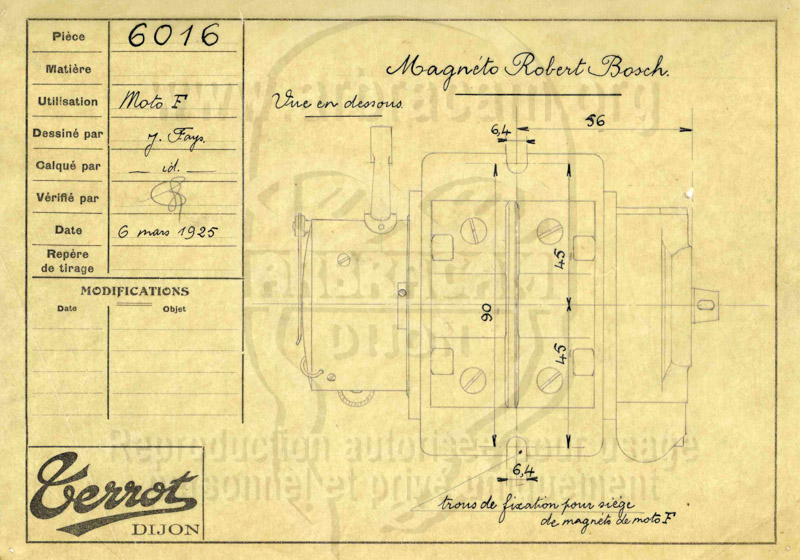 Pièce 6016
Matière
Utilisation Moto F
Dessiné par J. Fays.
Calqué par id.
Vérifié par
Date 6 mars 1925
Repère
de tirage
MODIFICATIONS
Date Objet
Terrot
DIJON
Magnéto Robert Bosch.
Vue en dessous
56
6,4
45
90
45
6,4
trous de fixation pour siège
de magnéto de moto F
www.arbracam.org
ARBRACAM
DIJON
Reproduction autorisée pour usage
personnel et privé uniquement